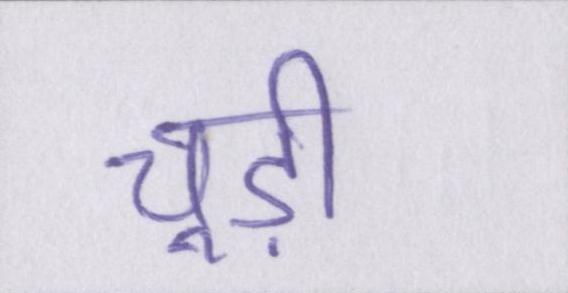 चूड़ी